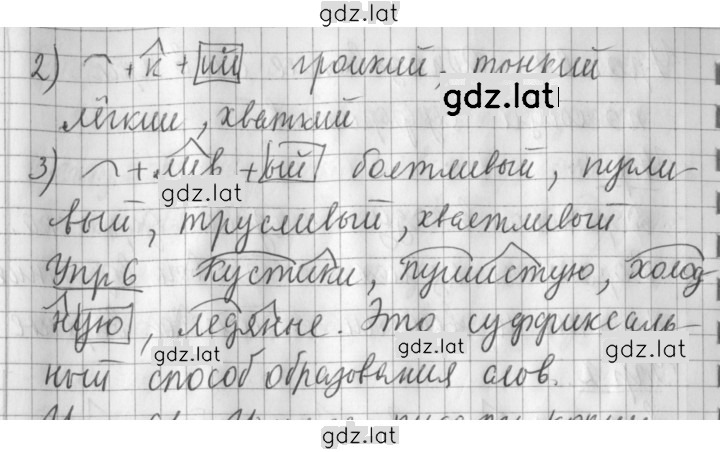 gdz.lat
2) ⌒ + к + ий громкий, тонкий
gdz.lat
лёгкий, хваткий
3) ⌒ + лив + ый болтливый, пугли-
gdz.lat
вый, трусливый, хвастливый
Упр 6 кустики, пушистую, холод-
ную, ледяные. Это суффиксаль-
gdz.lat gdz.lat gdz.lat
ный способ образования слов.
gdz.lat